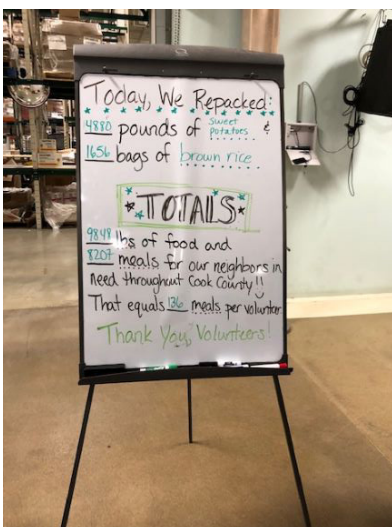 Today, We Repacked:
4880 pounds of sweet potatoes &
1656 bags of brown rice
TOTALS
9848 lbs of food and
8207 meals for our neighbors in
need throughout Cook County!!
That equals 136 meals per volunteer
Thank You, Volunteers!